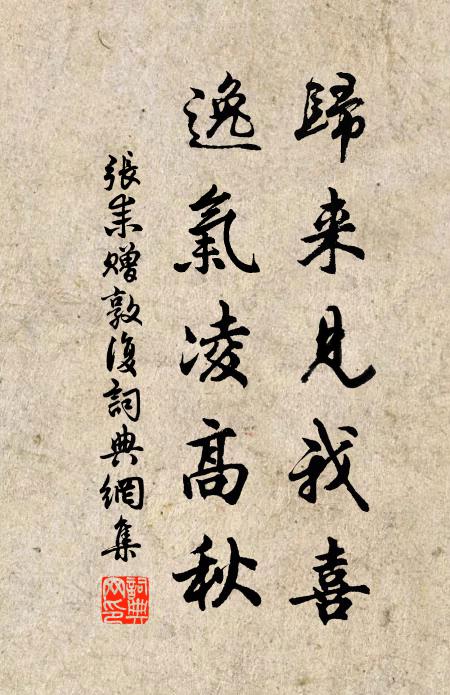 歸来見我喜
逸氣凌高秋
張耒贈敦復詞典網集
詞典
网印